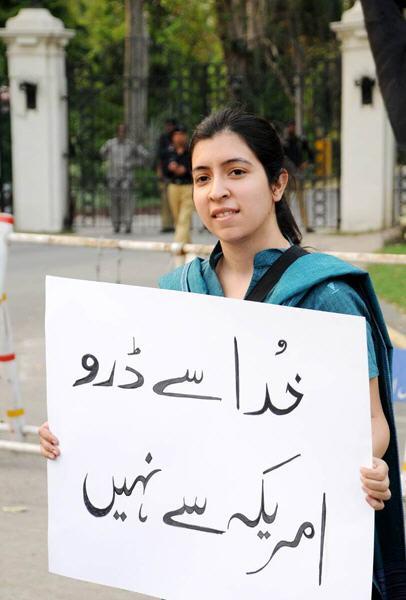 خُدا سے ڈرو
امریکہ سے نہیں